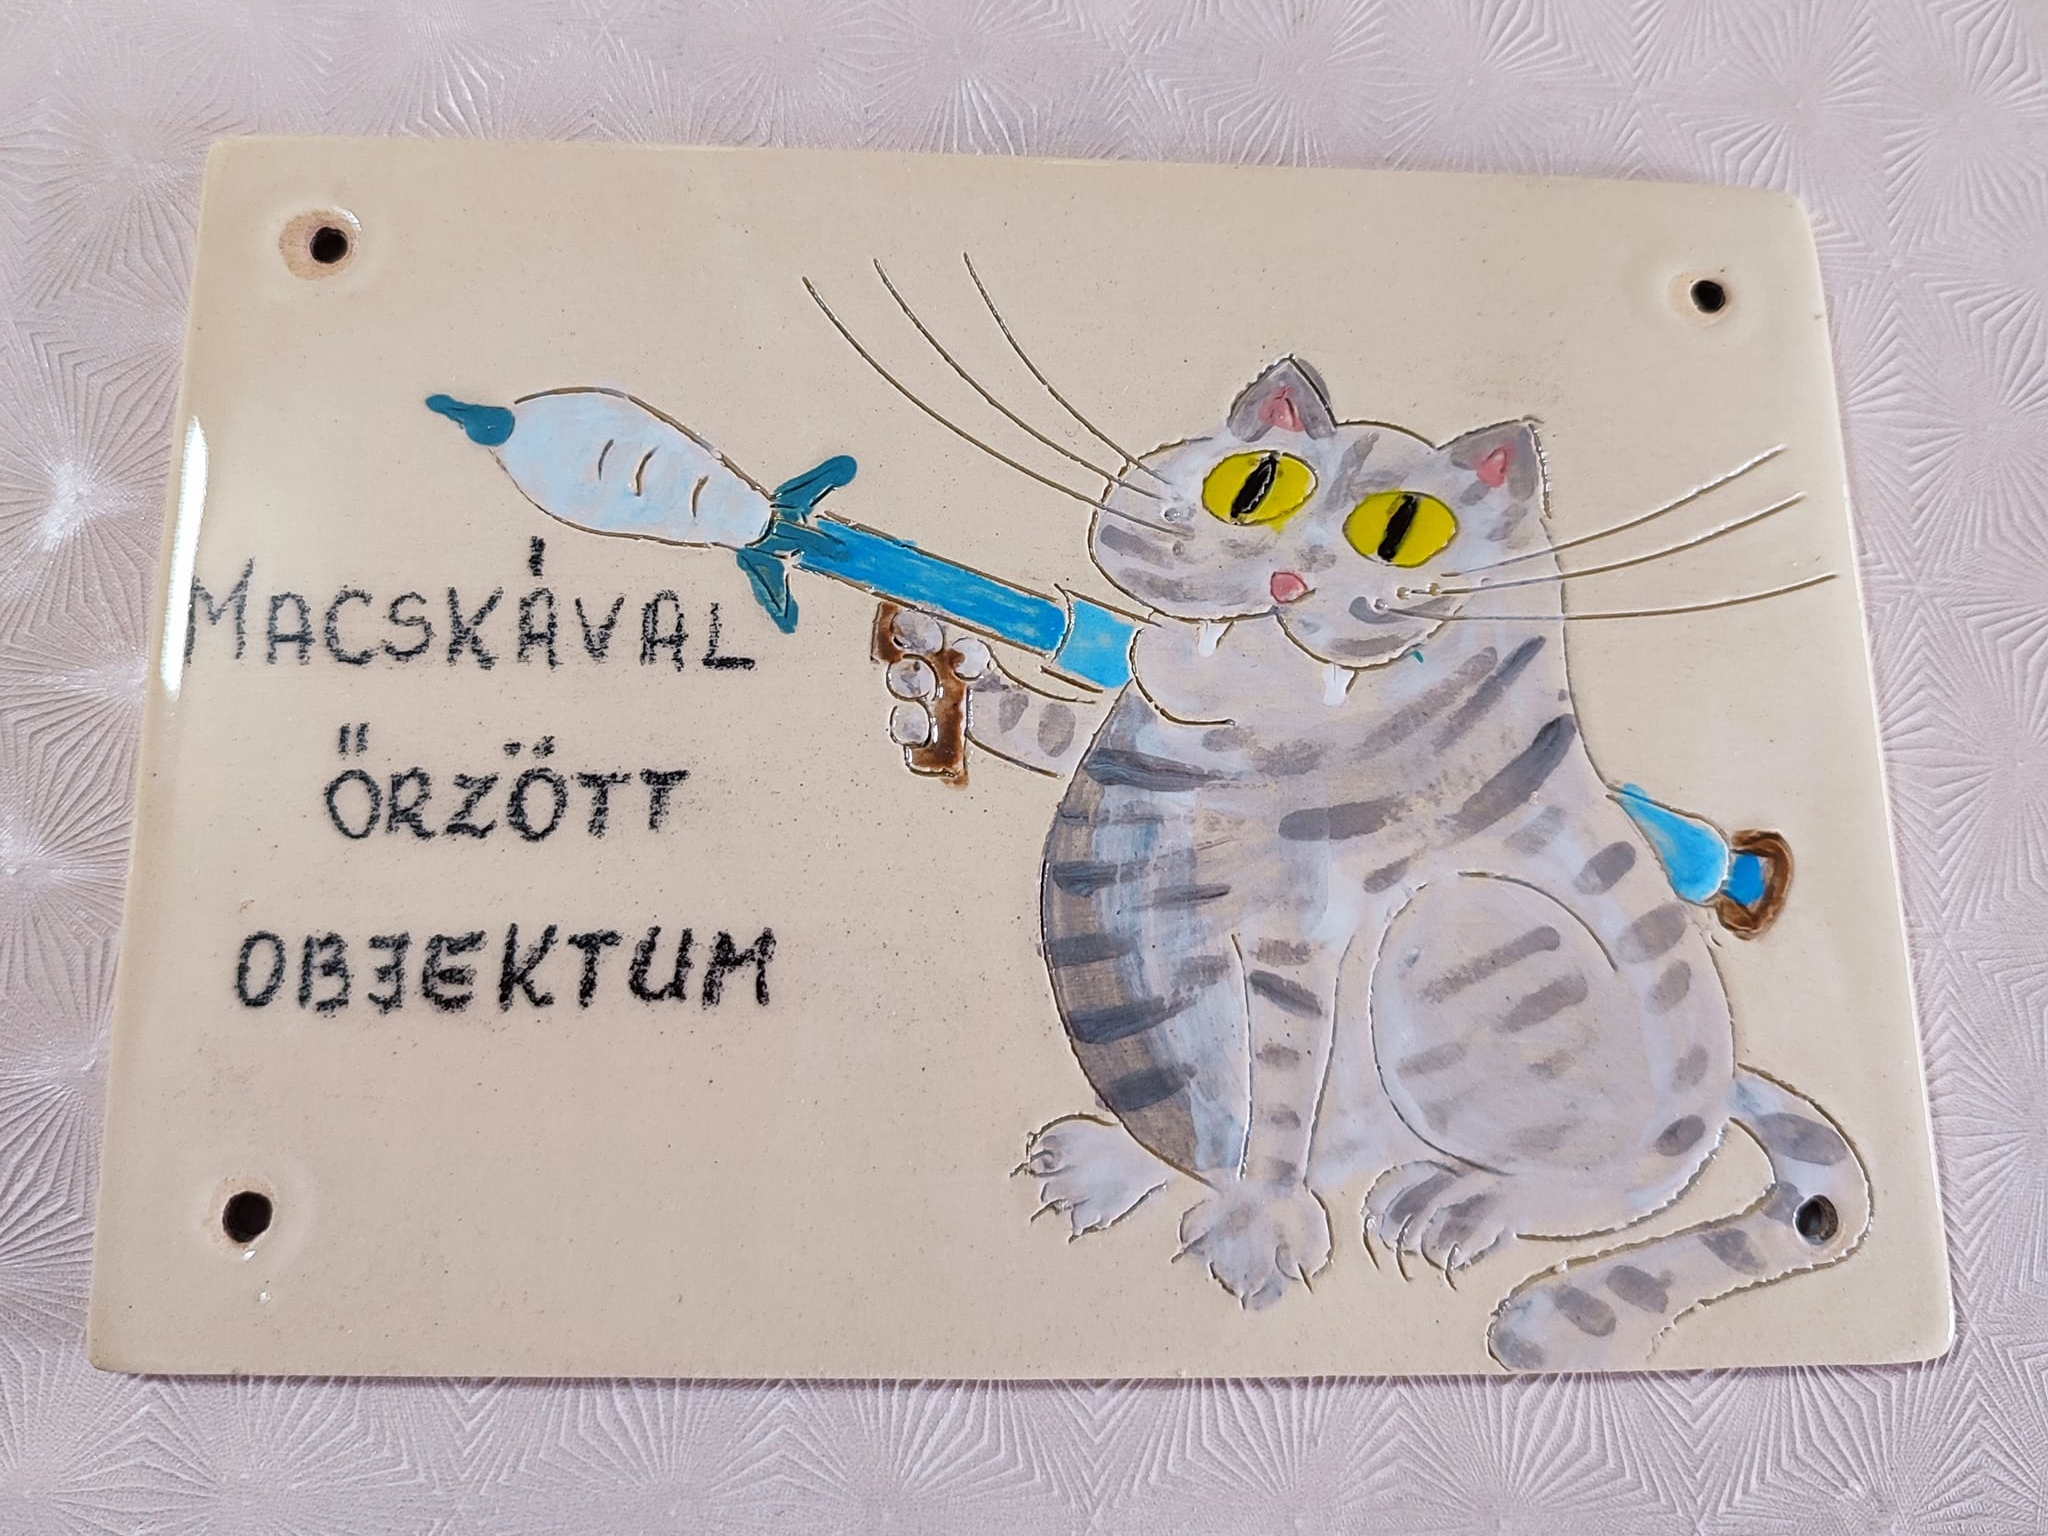 MACSKÁVAL
ŐRZÖTT
OBJEKTUM